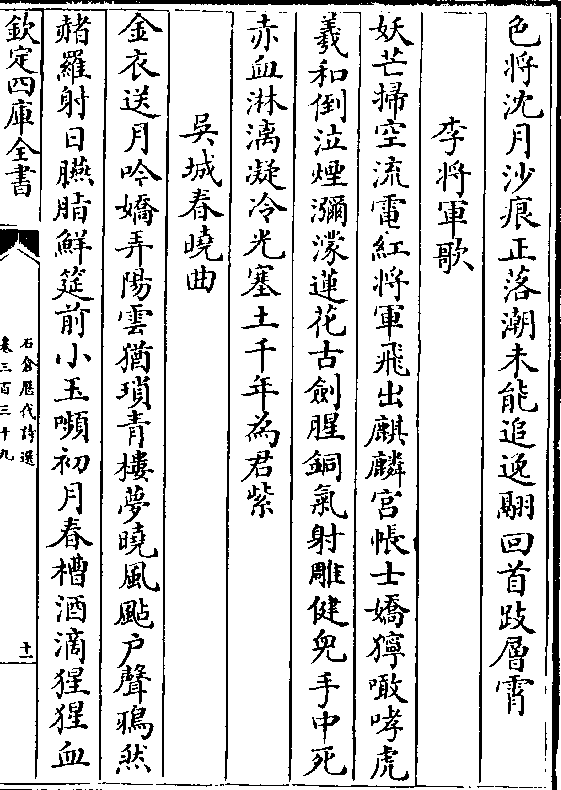 色將沈月沙痕正落潮未能追逸翮回首跂層霄
李將軍歌
妖芒掃空流電紅將軍飛出麒麟宮帳士嬌獰噉哮虎
羲和倒泣煙瀰濛蓮花古劍腥銅氣射雕健兒手中死
赤血淋漓凝冷光塞土千年為君紫
吳城春曉曲
金衣送月吟嬌弄陽雲猶瑣青樓夢曉風颭户聲鳴然
赭羅射日臙脂鮮筵前小玉嚬初月春槽酒滴猩猩血
欽定四庫全書
石倉歷代詩選
卷三百三十九
十一